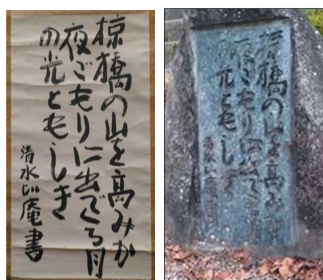 椋橋の山を高みか
夜ごもりに出でくる月
の光ともしき
清水比庵書
椋橋の山を高みか
夜ごもりに出でくる月
の光ともしき
清水比庵書